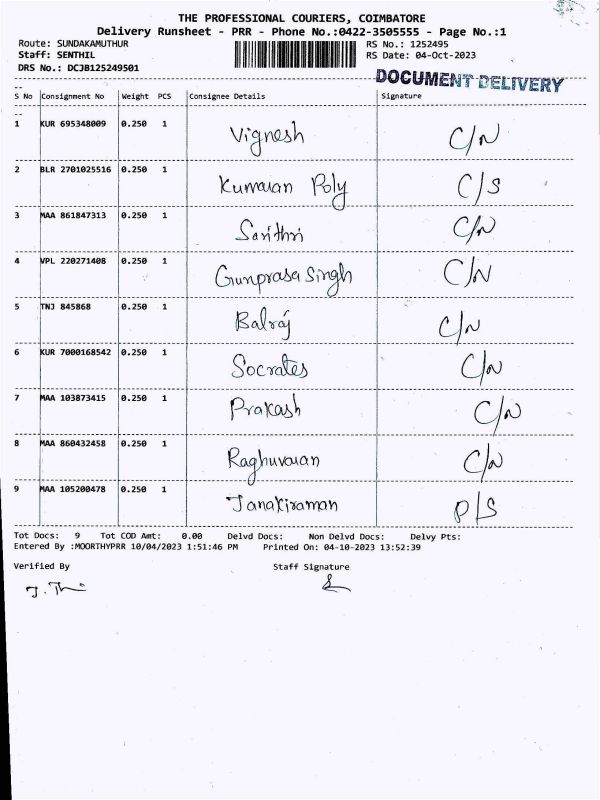 THE PROFESSIONAL COURIERS, COIMBATORE
Delivery Runsheet - PRR - Phone No.:0422-3505555 - Page No.:1
Route: SUNDAKAMUTHUR RS No.: 1252495
Staff: SENTHIL RS Date: 04-Oct-2023
DRS No.: DCJB125249501
DOCUMENT DELIVERY
--
S No Consignment No Weight PCS Consignee Details Signature
--
1 KUR 695348009 0.250 1 Vignesh C/N
2 BLR 2701025516 0.250 1 Kumaran Poly C/S
3 MAA 861847313 0.250 1 Savithri C/N
4 VPL 220271408 0.250 1 Gunprasa Singh C/N
5 TNJ 845868 0.250 1 Balraj C/N
6 KUR 7000168542 0.250 1 Socrates C/N
7 MAA 103873415 0.250 1 Prakash C/N
8 MAA 860432458 0.250 1 Raghuvaran C/N
9 MAA 105200478 0.250 1 Janakiraman P/S
Tot Docs: 9 Tot COD Amt: 0.00 Delvd Docs: Non Delvd Docs: Delvy Pts:
Entered By :MOORTHYPRR 10/04/2023 1:51:46 PM Printed On: 04-10-2023 13:52:39
Verified By Staff Signature